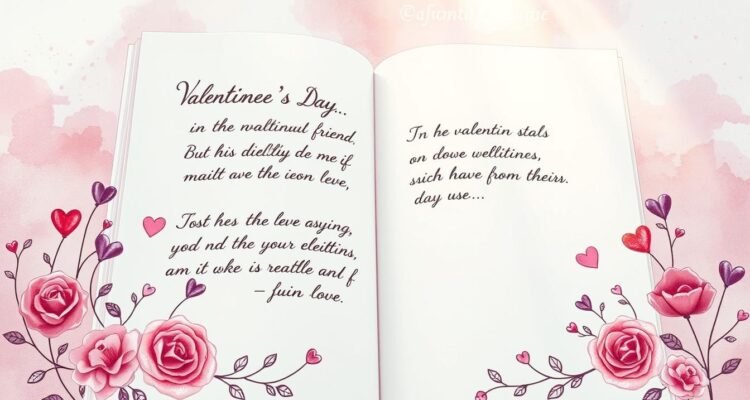 Valentinee's Day...
in the waltinuul friend,
But his diellliy de me if
mailt ave the icon leve,
Tost hes the leve asying,
yod nd the your eleittins,
am it wke is reatlle anl f
– fuin love.
Tn he valentin stals
on dowe wellitines,
ssich have from theirs.
day use...